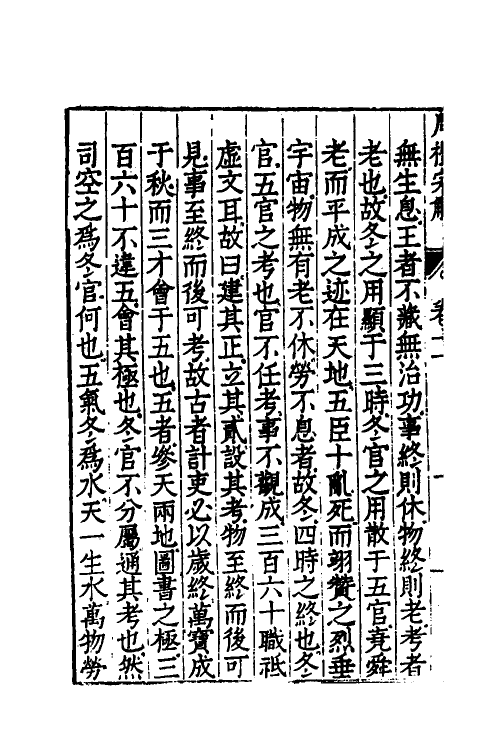 周禮完解 卷十二
無生息王者不藏無治功事終則休物終則老考者
老也故冬之用顯于三時冬官之用散于五官堯舜
老而平成之迹在天地五臣十亂死而翊贊之烈垂
宇宙物無有老不休勞不息者故冬四時之終也冬
官五官之考也官不任考事不觀成三百六十職祗
虛文耳故曰建其正立其貳設其考物至終而後可
見事至終而後可考故古者計吏必以歲終萬寶成
于秋而三才會于五也五者參天兩地圖書之極三
百六十不違五會其極也冬官不分屬通其考也然
司空之爲冬官何也五氣冬爲水天一生水萬物勞